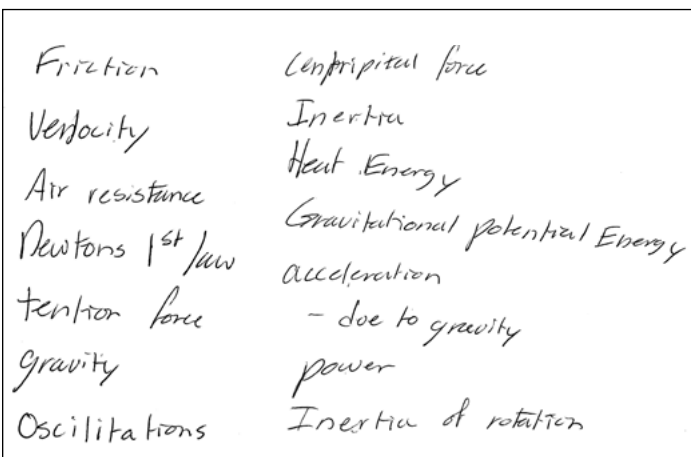 Friction
Verlocity
Air resistance
Newtons 1st law
tention force
gravity
Oscilitations
Centripital force
Inertia
Heat Energy
Gravitational potential Energy
acceleration
- due to gravity
power
Inertia of rotation